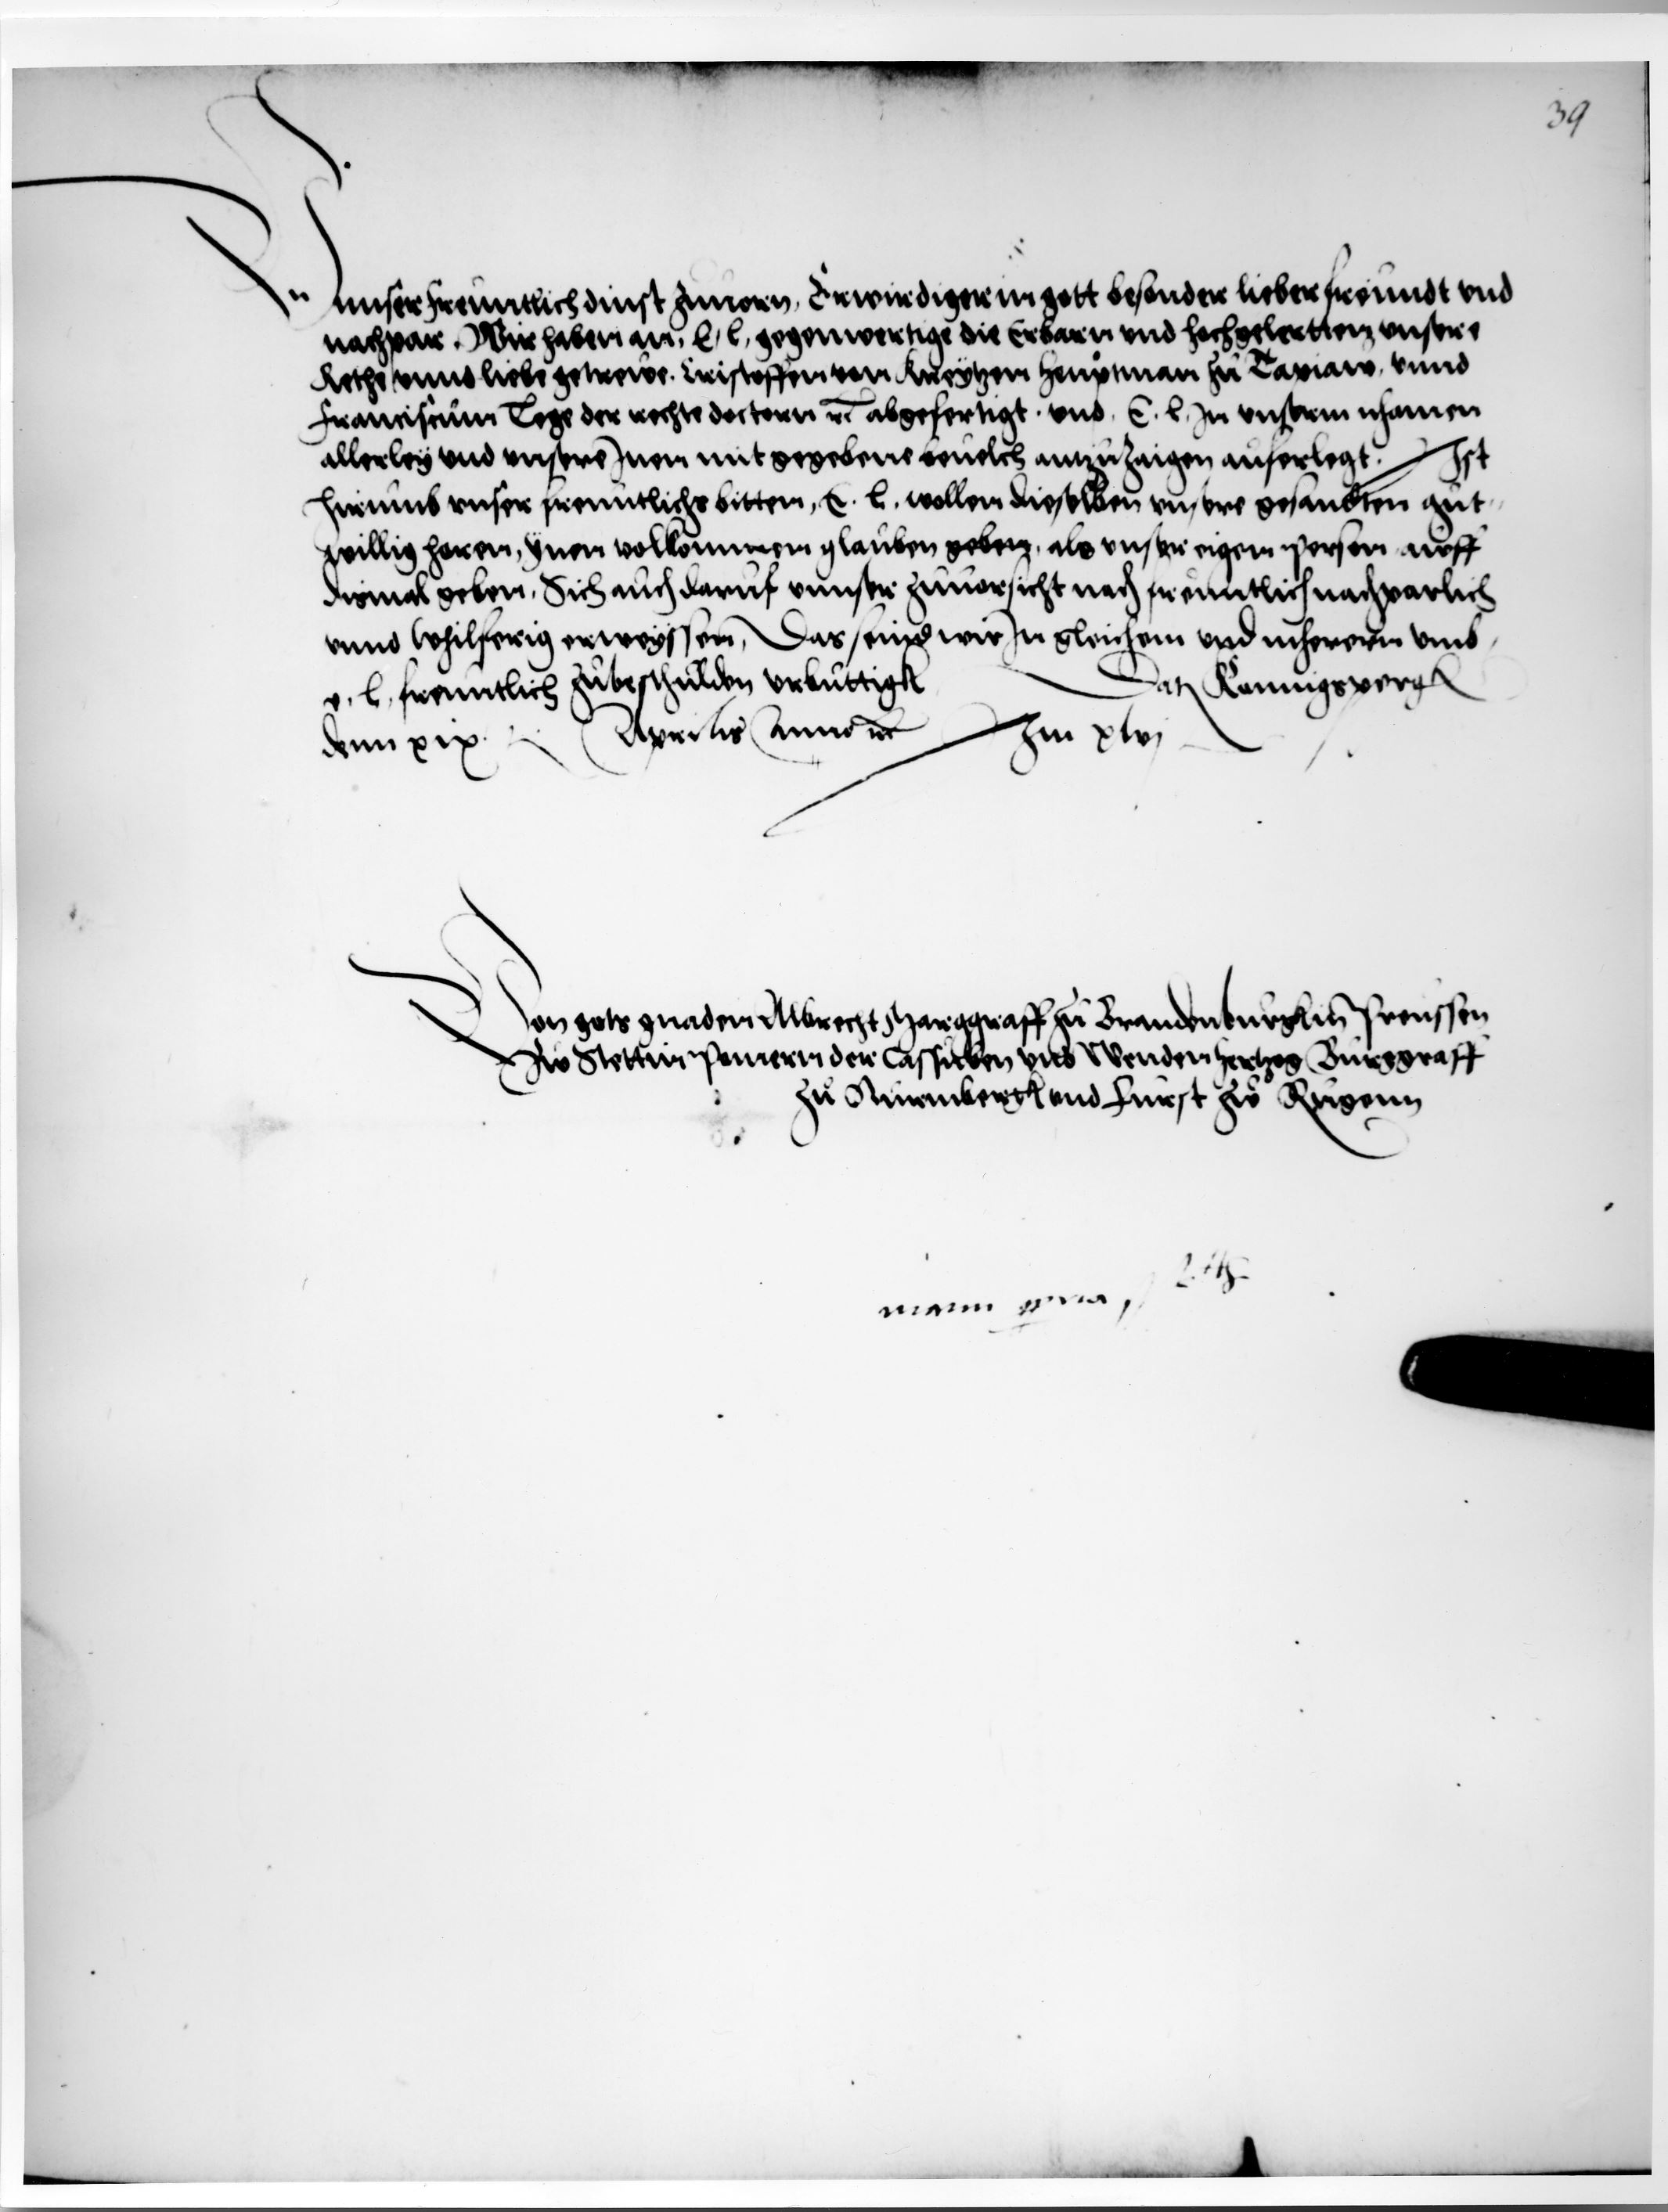 39
Vnnser freuntlich dinst zuuorn, Erwirdiger in gott besonder lieber freundt vnd
nachpar. Wir haben an, E. l, gegenwertige die Erbarn vnd hochgelertten vnsere
Rethe vnnd liebe getrewe. Cristoffen von Kreytzen Heuptman zu Tapiaw, vnnd
Franciscum Tege der rechte doctorn etc abgefertigt. vnd, E. l, In vnserm nhamen
allerley vnd vnsere Inen mit gegebene beuelch antzuzaigen auferlegt. Ist
hirumb vnser freuntlichs bitten, E. l, wollen dieselben vnsere gesandten gut
willig horen, ynen volkommen glauben geben, als vnser eigen person auff
dismal geben, Sich auch daruf vnnser zuuorsicht nach freuntlich nachparlich
vnnd whilferig erweyssen, Das seind wir In gleichem vnd mherern vmb
e, l, freuntlich zubeschulden vrbuttigk Datz Konnigspergk
denn xix. Aprilis Anno etc Im xlvj
Von gots gnaden Albrecht Marggraff zu Brandenburgk In Preussen
Zw Stettin Pomern der Cassuben vnd Wenden hertzog Burggraff
zu Nurmbergk vnd Furst zw Rugenn
manu propria